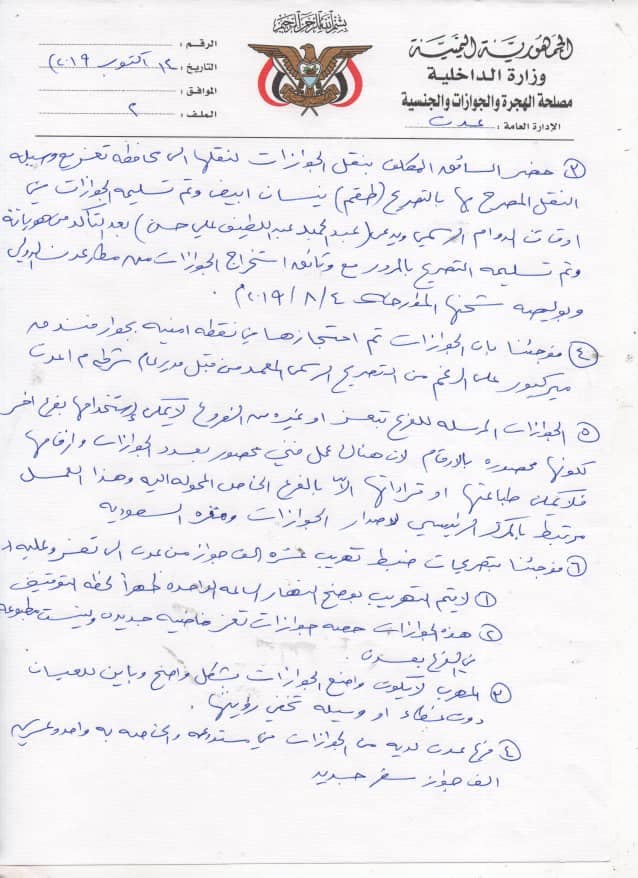 بسم الله الرحمن الرحيم
الجمهورية اليمنية
وزارة الداخلية
مصلحة الهجرة والجوازات والجنسية
الإدارة العامة : عدن
الرقم :
التاريخ : ١٢ اكتوبر ٢٠١٩م
الموافق :
الملف : ٢
٣ حضر السائق المكلف بنقل الجوازات لنقلها الى محافظة تعز مع وسيلة
النقل المصرح لها بالتصريح (طقم) نيسان ابيض وتم تسليمه الجوازات في
اوقات الدوام الرسمي ويدعى (عبدالحميد عبداللطيف علي حسن) بعد التأكد من هوياته
وتم تسليمه التصريح بالمرور مع وثائق استخراج الجوازات من مطار عدن الدولي
وبوليصه شحنها المؤرخه ٤ / ٨ / ٢٠١٩م .
٤ فوجئنا بان الجوازات تم احتجازها في نقطه امنيه بجوار فندق
ميركيور على الرغم من التصريح الرسمي المعمد من قبل مدير عام شرطه م / عدن
٥ الجوازات المرسله للفرع تبعز او غيره من الفروع لايمكن إستخدامها بفرع اخر
كونها محصوره بالارقام لان هناك عمل فني محصور بعدد الجوازات وارقامها
فلا يمكن طباعتها او قراءاتها الاّ بالفرع الخاص المحوله اليه وهذا العمل
مرتبط بالمركز الرئيسي لاصدار الجوازات ومقره السعوديه
٦ فوجئنا بتصريحات ضبط تهريب عشره الف جواز من عدن الى تعز وعليه
١ لايتم التهريب بوضح النهار الساعه الواحده ظهراً لحظه التوقيف
٢ هذه الجوازات حصه جوازات تعز خاضيه جديده وليست مطبوعه
في الفرع بعدن .
٣ المهرب لايكون واضع الجوازات بشكل واضح وباين للعيان
دون غطاء او وسيله تخفي رؤيتها .
٤ فرع عدن لديه من الجوازات في مستودعه والخاصه به واحد وعشرين
الف جواز سفر جديد